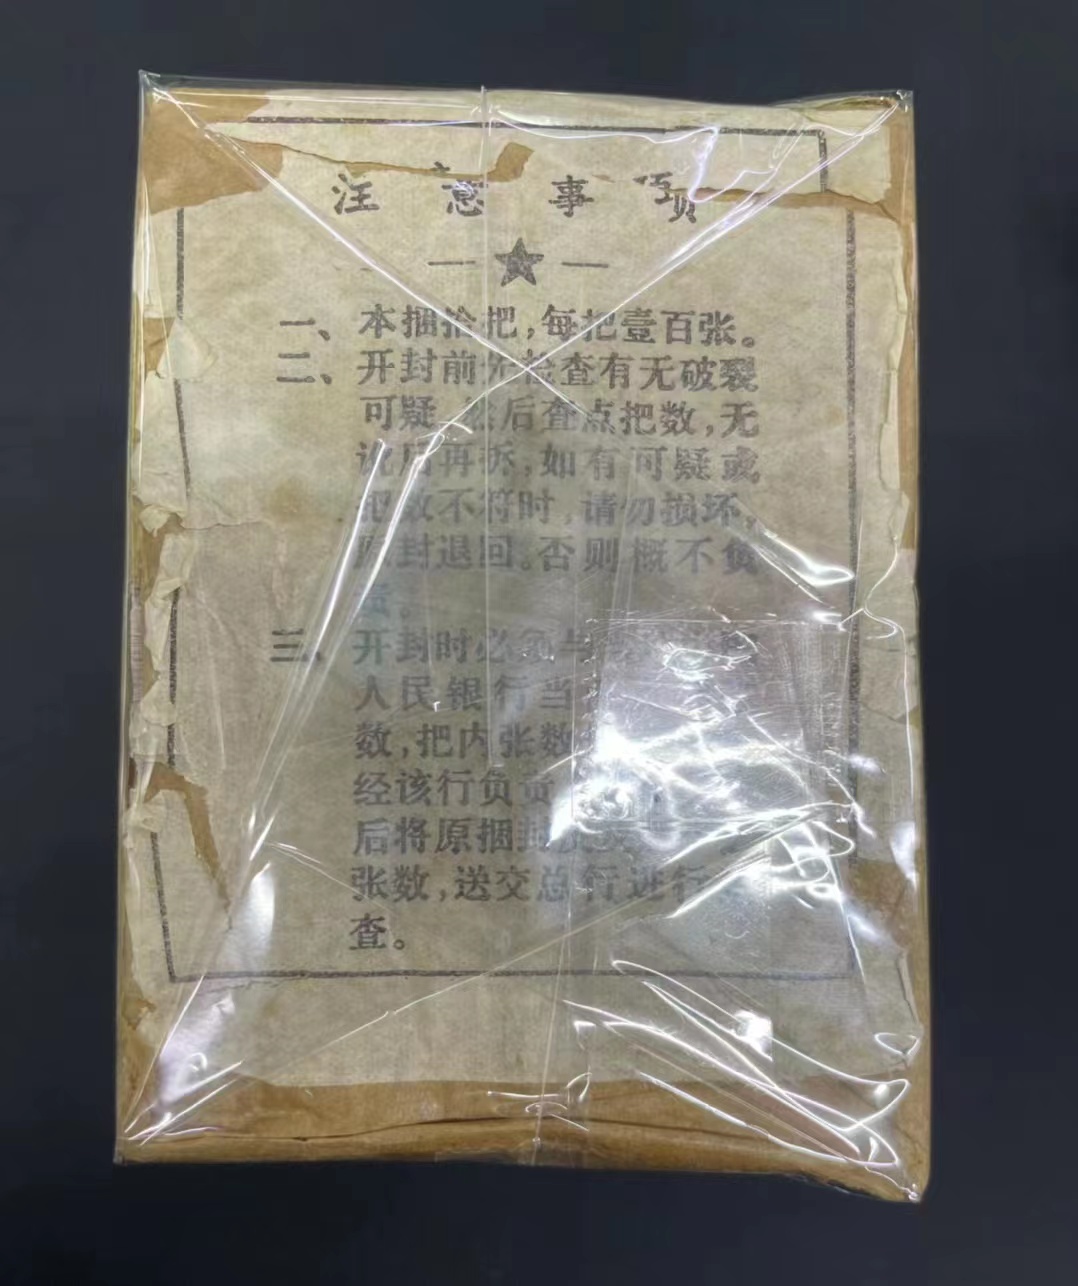 注意事项
一、本捆拾把,每把壹百张。
二、开封前先检查有无破裂
可疑,然后查点把数,无
讹后再拆,如有可疑或
把数不符时,请勿损坏,
原封退回。否则概不负
责。
三、开封时必须与
人民银行当
数,把内张数
经该行负责
后将原捆封
张数,送交总行进行
查。